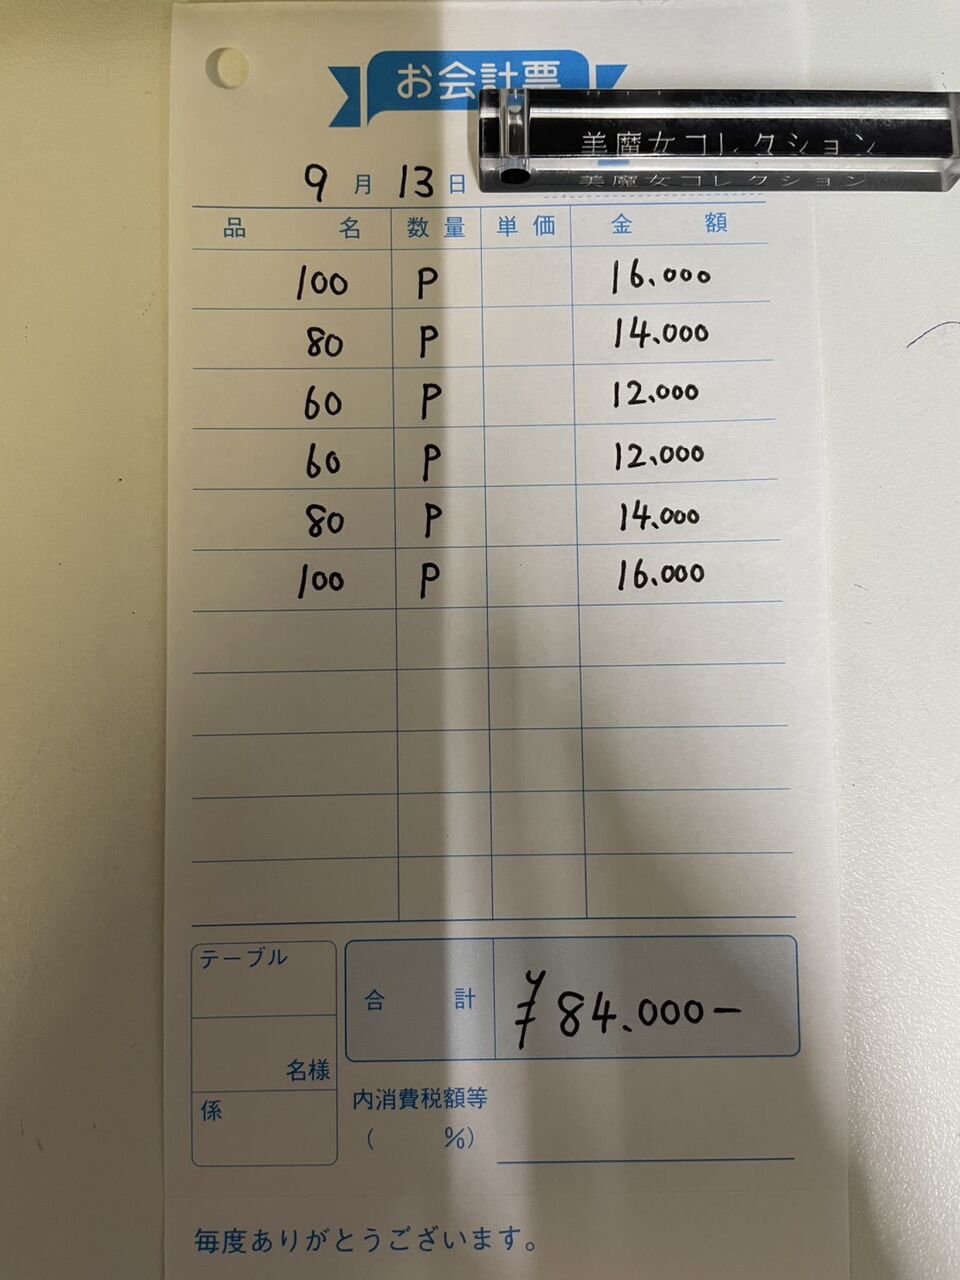 お会計票
美魔女コレクション
美魔女コレクション
9月13日
品名 数量 単価 金額
100 P 16.000
80 P 14.000
60 P 12.000
60 P 12.000
80 P 14.000
100 P 16.000
テーブル
名様
係
合計 ¥84.000-
内消費税額等
( %)
毎度ありがとうございます。